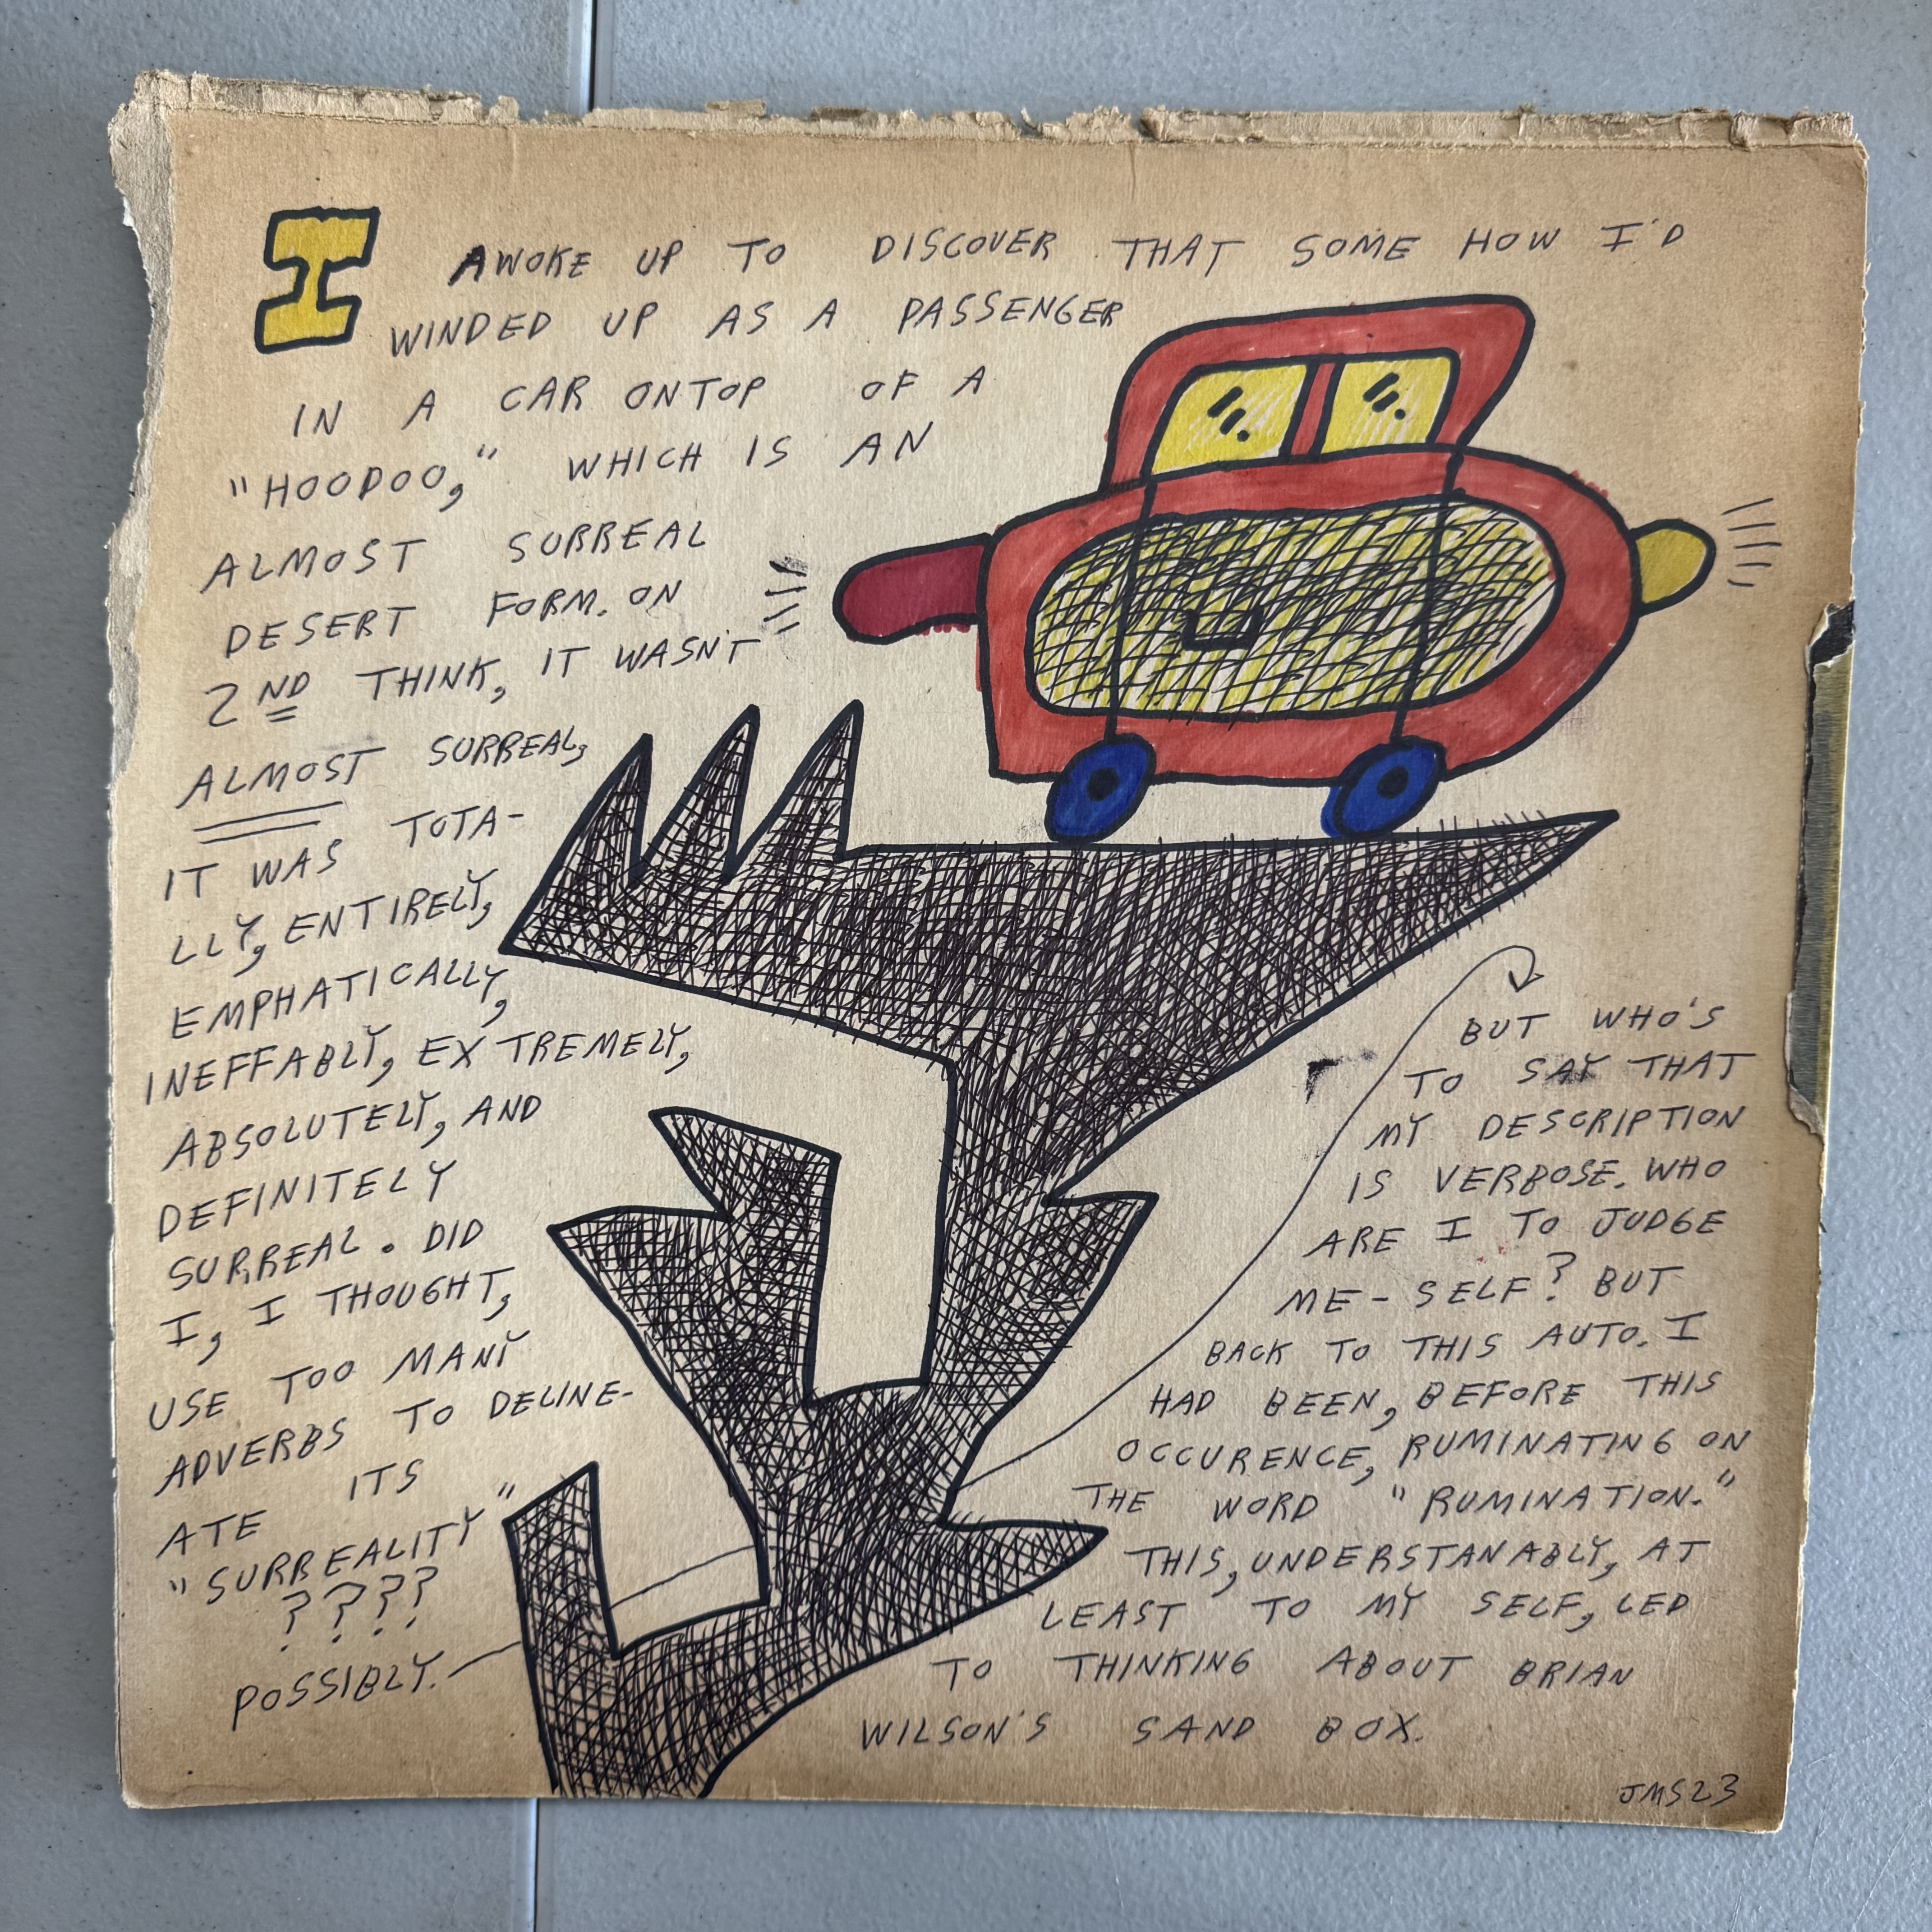 I AWOKE UP TO DISCOVER THAT SOME HOW I'D
WINDED UP AS A PASSENGER
IN A CAR ONTOP OF A
"HOODOO," WHICH IS AN
ALMOST SURREAL
DESERT FORM. ON
2ND THINK, IT WASN'T
ALMOST SURREAL,
IT WAS TOTA-
LLY, ENTIRELY,
EMPHATICALLY,
INEFFABLY, EXTREMELY,
ABSOLUTELY, AND
DEFINITELY
SURREAL. DID
I, I THOUGHT,
USE TOO MANY
ADVERBS TO DELINE-
ATE ITS
"SURREALITY"
????
POSSIBLY.
BUT WHO'S
TO SAY THAT
MY DESCRIPTION
IS VERBOSE. WHO
ARE I TO JUDGE
ME-SELF? BUT
BACK TO THIS AUTO. I
HAD BEEN, BEFORE THIS
OCCURENCE, RUMINATING ON
THE WORD "RUMINATION."
THIS, UNDERSTANABLY, AT
LEAST TO MY SELF, LED
TO THINKING ABOUT BRIAN
WILSON'S SAND BOX.
JMS23